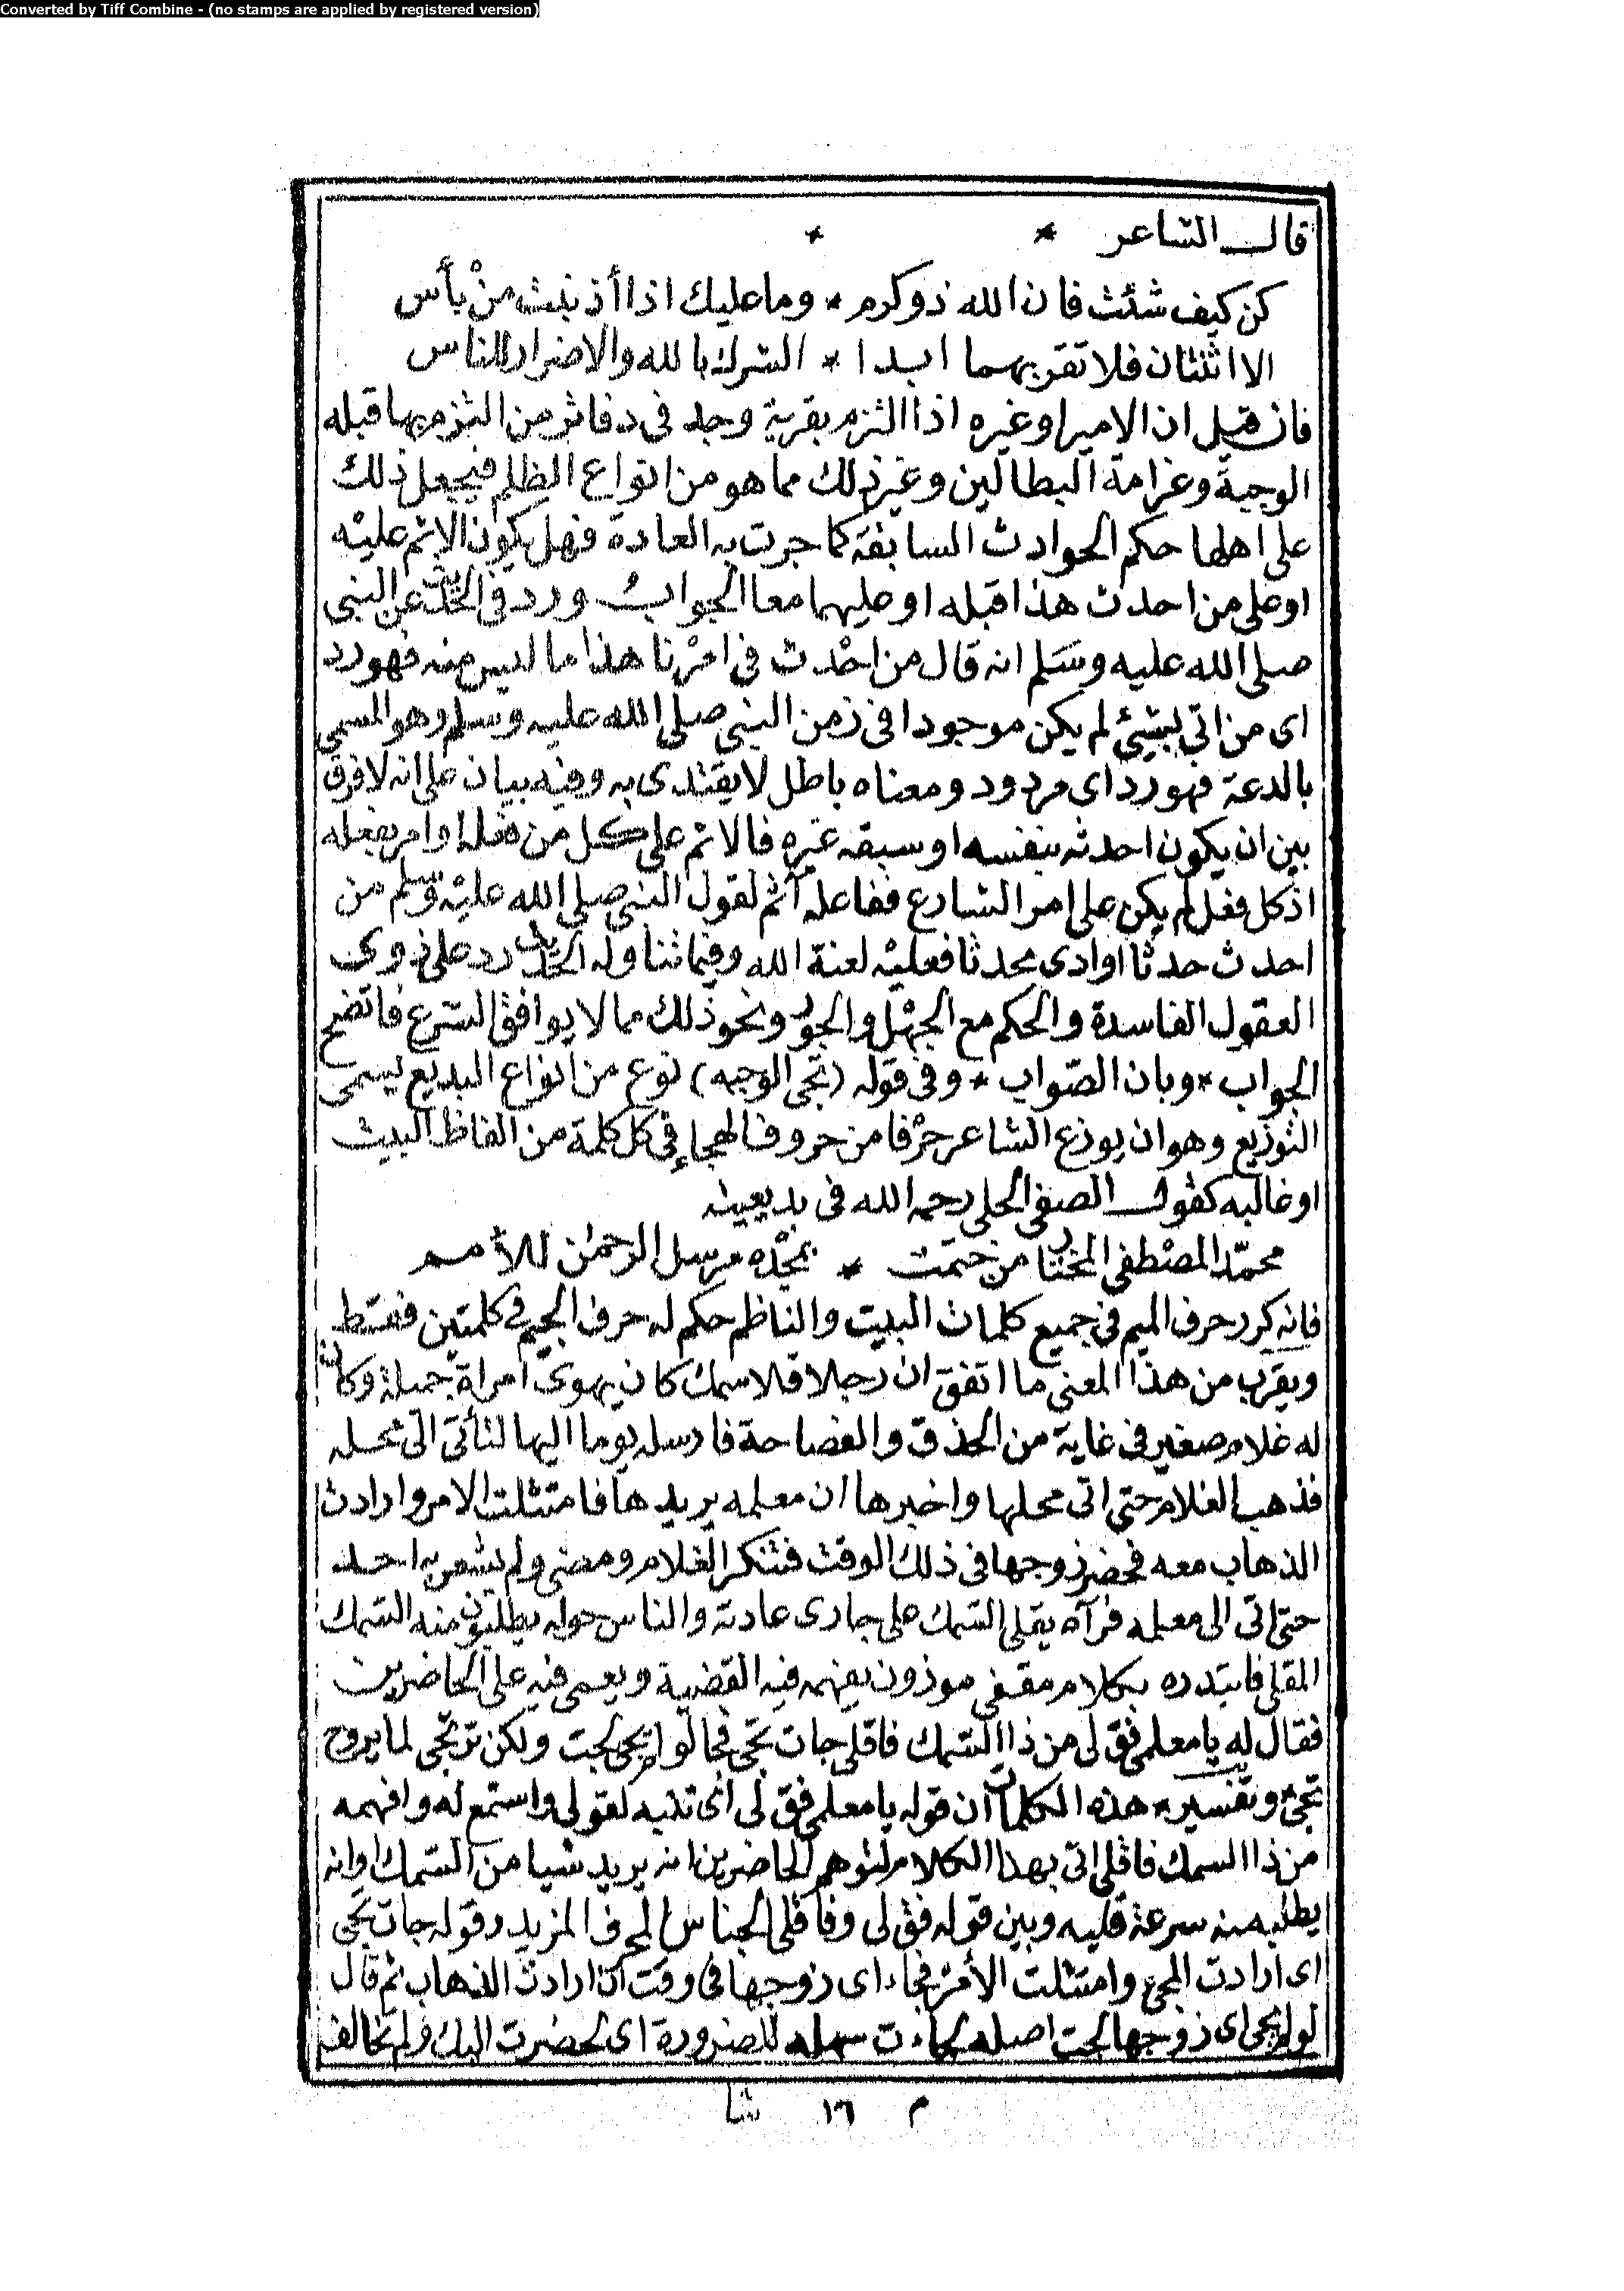 Converted by Tiff Combine - (no stamps are applied by registered version)
قال الشاعر * *
كن كيف شئت فان الله ذو كرم * وما عليك اذا أذنبت منْ بأس
الا اثنتان فلا تقربهما ابدا * الشرك بالله والاضرار للناس
فان قيل ان الامير او غيره اذا التزم بقرية وجد فى دفاتر من التزم بها قبله
الوجبة وغرامة البطالين وغير ذلك مما هو من انواع الظلم فيجعل ذلك
على اهلها حكم الحوادث السابقة كما جرت به العادة فهل يكون الاثم عليه
او على من احدث هذا قبله او عليهما معا الجواب ورد فى الحديث عن النبى
صلى الله عليه وسلم انه قال من احْدث فى امْرنا هذا ما ليس منه فهو رد
اى من اتى بشئ لم يكن موجودا فى زمن النبى صلى الله عليه وسلم وهو المسمى
بالدعة فهو رد اى مردود ومعناه باطل لا يقتدى به وفيه بيان على انه لا فرق
بين ان يكون احدثه بنفسه او سبقه غيره فالاثم على كل من فعله او امر بفعله
اذ كل فعل لم يكن على امر الشارع ففاعله آثم لقول النبى صلى الله عليه وسلم من
احدث حدثا او اوى محدثا فعليه لعنة الله وفيما تناوله الحديث رد على ذوى
العقول الفاسدة والحكم مع الجهل والجور ونحو ذلك مما لا يوافق الشرع فاتضح
الجواب * وبان الصواب * وفى قوله (تجى الوجبه) نوع من انواع البديع يسمى
التوزيع وهو ان يوزع الشاعر حرْفا من حروف الهجاء فى كل كلمة من الفاظ البيت
او غالبه كقول الصفى الحلى رحمه الله فى بديعيته
محمّد المصْطفى المختار من ختمت * بمجْده مرسل الرحمن للأمم
فانه كرر حرف الميم فى جميع كلمات البيت والناظم حكم له حرف الجيم فى كلمتين فقط
ويقرب من هذا المعنى ما اتفق ان رجلا قلا سمك كان يهوى امراة جميلة وكان
له غلام صغير فى غاية من الحذق والفصاحة فارسله يوما اليها لتأتى الى محله
فذهب الغلام حتى اتى محلها واخبرها ان معلمه يريدها فامتثلت الامر وارادت
الذهاب معه فحضر زوجها فى ذلك الوقت فتنكر الغلام ومضى ولم يشعر به احد
حتى اتى الى معلمه فرآه يقلى السمك على جارى عادته والناس حوله يطلبون منه السمك
المقلى فابتدره بكلام مقفى موزون يفهمه فيه القضية ويعمى فيه على الحاضرين
فقال له يا معلمى فق لى من ذا السمك فاقلى جات تجى فجا لو لم يجى لجت ولكن ترتجى لما يروح
تجى وتفسير هذه الكلمات ان قوله يا معلمى فق لى اى تنبه لقولى واستمع له وافهمه
من ذا السمك فاقلى اتى بهذا الكلام لتوهم الحاضرين انه يريد شيا من السمك او انه
يطلب منه سرعة قليه وبين قوله فق لى وفاقلى الجناس المحرف المزيد وقوله جات تجى
اى ارادت المجئ وامتثلت الأمر فجاء اى زوجها فى وقت ان ارادت الذهاب ثم قال
لو لم يجى اى زوجها لجت اصله لجاءت سهله للضرورة اى لحضرت اليك ولم تخالف
م ١٦ شا